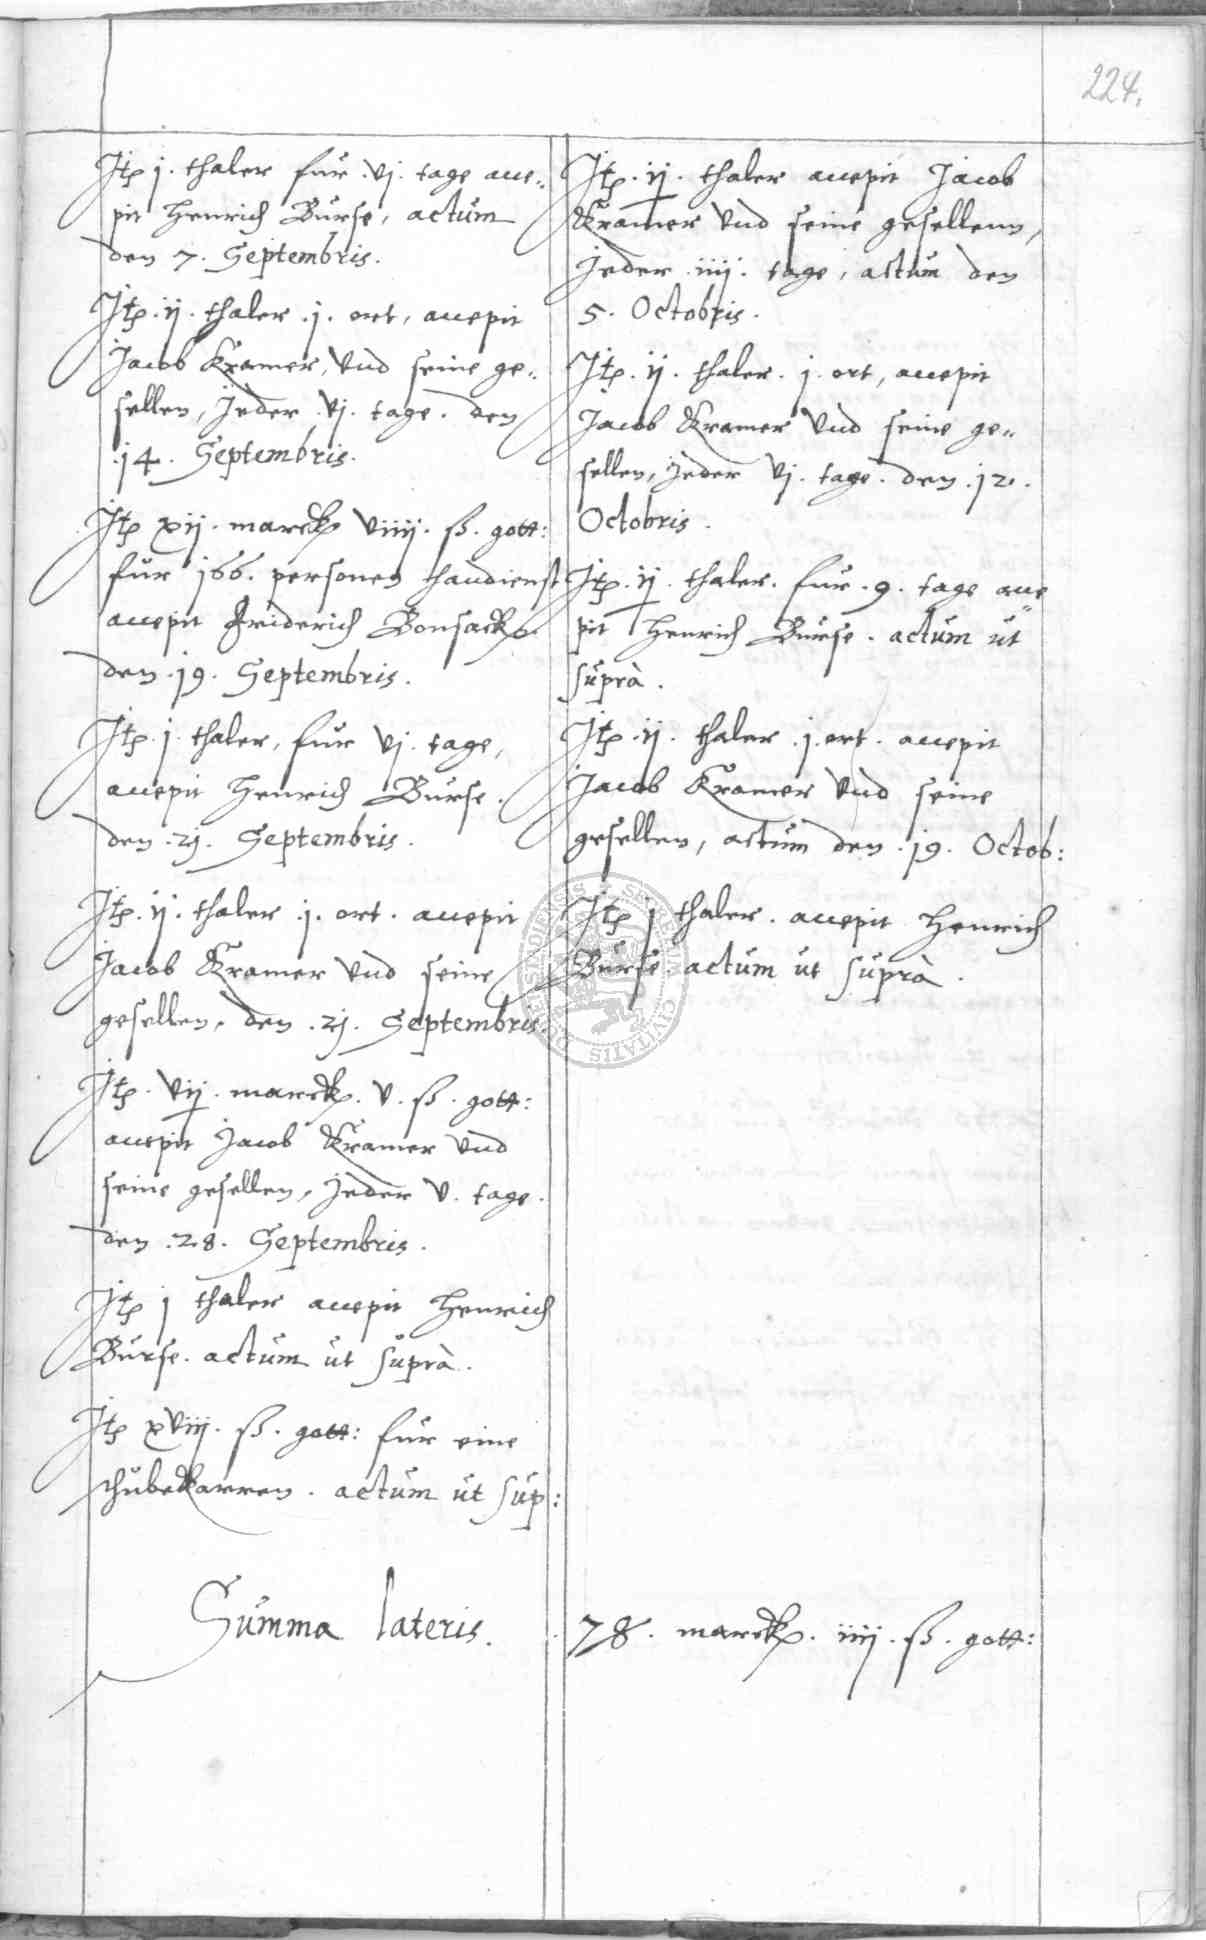 224.
Itp j. thaler fur .vj. tage acce„
pit Henrich Burse, actum
den 7. Septembris.
Itp .ij. thaler .j. ort, accepit
Jacob Kramer, vnd seine ge„
sellen, Jeder .vj. tage. den
.14. Septembris.
Itp xij. marckp viiij. ß. gott:
fur 166. personen handienst
accepit Friderich Bonsackp
den .19. Septembris.
Itp .j. thaler, fur vj. tage,
accepit Henrich Burse.
den .21. Septembris.
Itp .ij. thaler .j. ort. accepit
Jacob Kramer vnd seine
gesellen, den .21. Septembris.
Itp. vij. marckp. v. ß. gott:
accepit Jacob Kramer vnd
seine gesellen, Jeder v. tage.
den .28. Septembris.
Itp j thaler accepit Henrich
Burse. actum ut suprà.
Itp xviij. ß. gott: fur eine
schubekarren. actum ut sup:
Itp .ij. thaler accepit Jacob
Kramer vnd seine gesellenn,
Jeder .iiij. tage, actum den
5. Octobris.
Itp. ij. thaler. j. ort, accepit
Jacob Kramer vnd seine ge„
sellen, Jeder vj. tage. den .12.
Octobris.
Itp .ij. thaler. fur .9. tage acce„
pit Henrich Burse. actum ut
suprà.
Itp .ij. thaler .j. ort. accepit
Jacob Kramer vnd seine
gesellen, actum den .19. Octob:
Itp j thaler. accepit Henrich
Burse. actum ut suprà.
Summa lateris. 78. marckp. iiij. ß. gott: